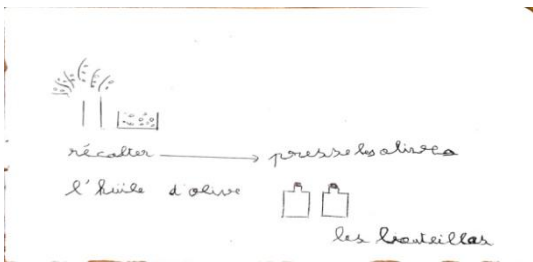 récolter → presse les olives
l'huile d'olive
les bouteillas